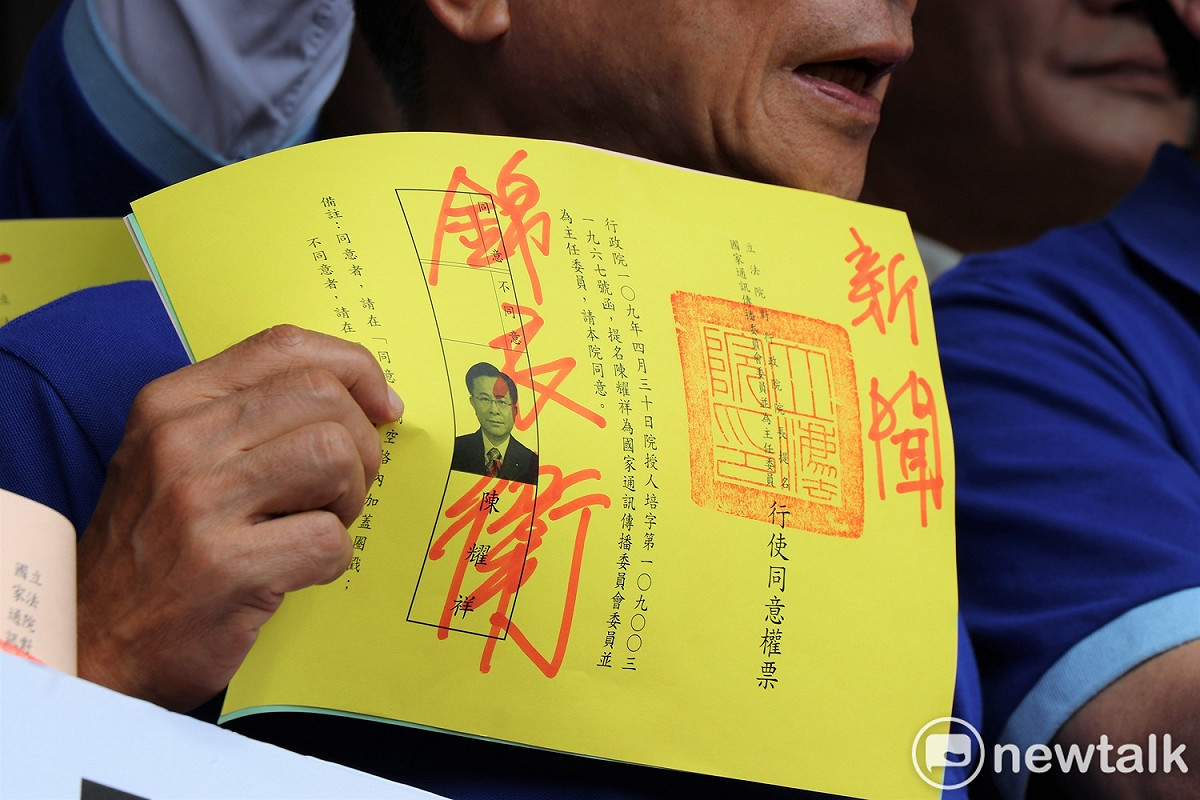 新聞
立法院對行政院院長提名
國家通訊傳播委員會委員並為主任委員
行使同意權票
立法院印
行政院一〇九年四月三十日院授人培字第一〇九〇〇三
一九六七號函，提名陳耀祥為國家通訊傳播委員會委員並
為主任委員，請本院同意。
錦衣衛
同意
不同意
陳耀祥
備註：同意者，請在「同意 空格內加蓋圈戳；
不同意者，請在
立法院對
國家通訊
newtalk